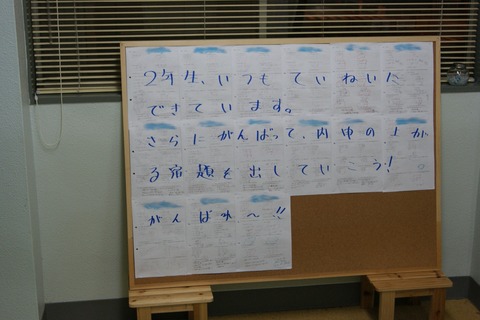 2年生、いつもていねいに
できています。
さらにがんばって、内申の上が
る宿題を出していこう!
がんばれ〜!!